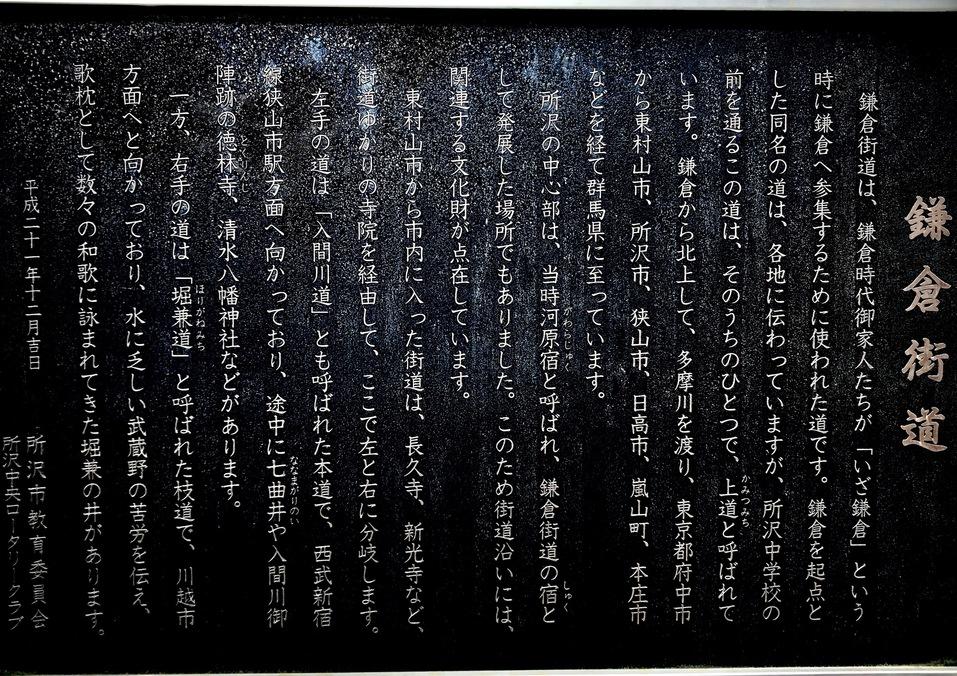 鎌倉街道
鎌倉街道は、鎌倉時代御家人たちが「いざ鎌倉」という
時に鎌倉へ参集するために使われた道です。鎌倉を起点と
した同名の道は、各地に伝わっていますが、所沢中学校の
前を通るこの道は、そのうちのひとつで、上道と呼ばれて
かみつみち
います。鎌倉から北上して、多摩川を渡り、東京都府中市
から東村山市、所沢市、狭山市、日高市、嵐山町、本庄市
などを経て群馬県に至っています。
所沢の中心部は、当時河原宿と呼ばれ、鎌倉街道の宿と
がわらじゅく
しゅく
して発展した場所でもありました。このため街道沿いには、
関連する文化財が点在しています。
東村山市から市内に入った街道は、長久寺、新光寺など、
街道ゆかりの寺院を経由して、ここで左と右に分岐します。
左手の道は「入間川道」とも呼ばれた本道で、西武新宿
線狭山市駅方面へ向かっており、途中に七曲井や入間川御
ななまがりのい
陣跡の徳林寺、清水八幡神社などがあります。
とくりんじ
一方、右手の道は「堀兼道」と呼ばれた枝道で、川越市
ほりがねみち
方面へと向かっており、水に乏しい武蔵野の苦労を伝え、
歌枕として数々の和歌に詠まれてきた堀兼の井があります。
平成二十一年十二月吉日
所沢市教育委員会
所沢中央ロータリークラブ